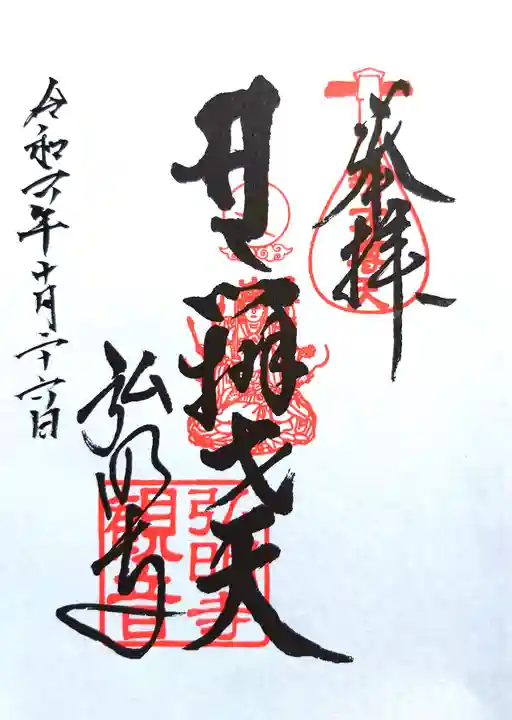 奉拜
辨才天
弘明寺
令和六年十月二十六日
弘明寺
觀音